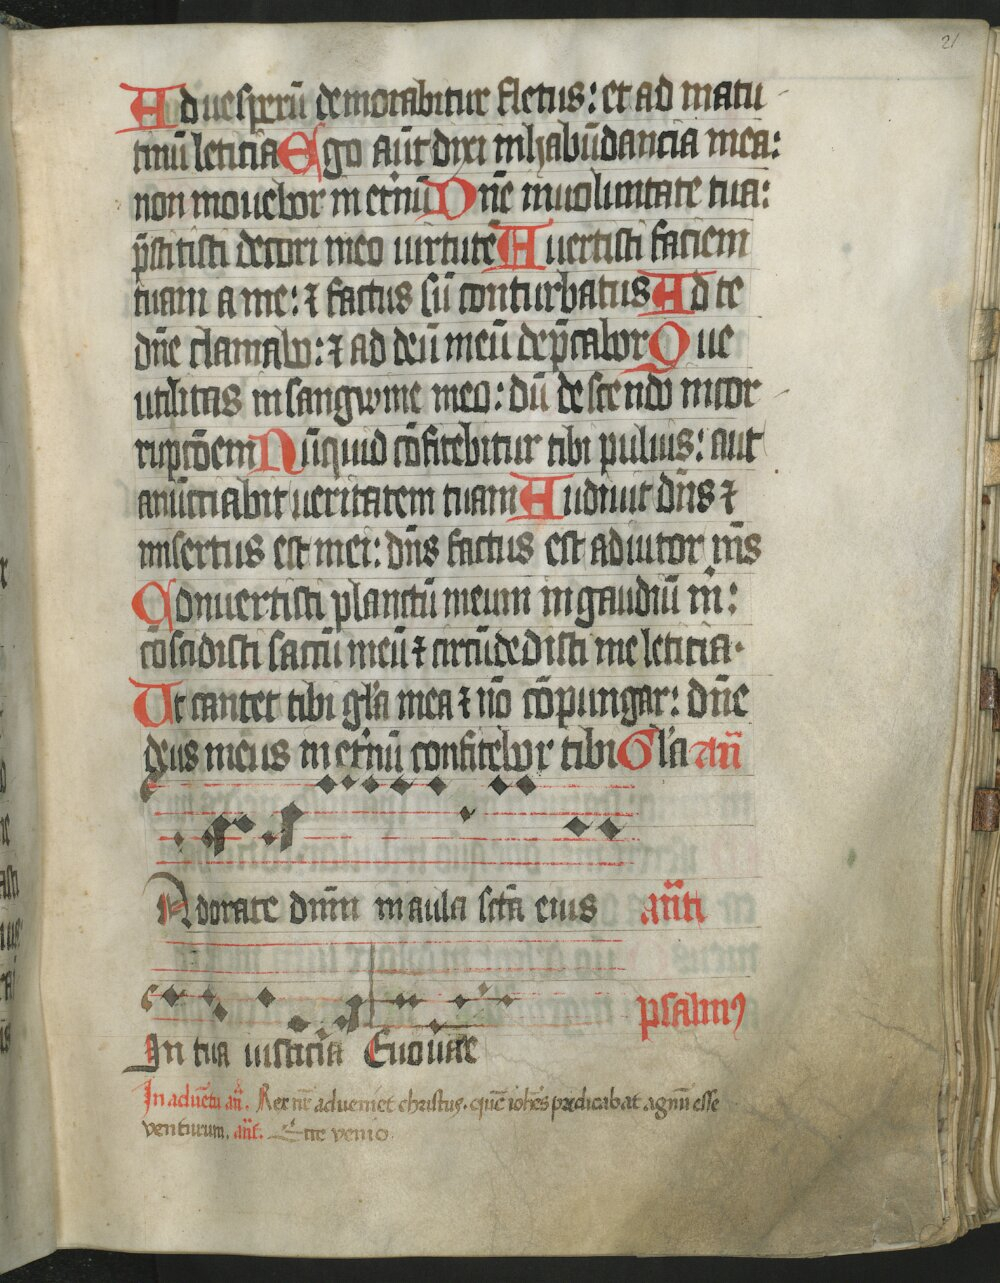 21
Ad uesperū demorabitur fletus: et ad matu
tinū leticia Ego aūt dixi in habūdancia mea:
non mouebor in et̄nū Dn̄e in uoluntate tua:
p̄stitisti decori meo uirtutē Auertisti faciem
tuam a me: ⁊ factus sū conturbatus Ad te
dn̄e clamabo: ⁊ ad deū meū dep̄cabor Que
utilitas in sangwine meo: dū descendo in cor
rupcōem Nūquid cōfitebitur tibi puluis: aut
anūciabit ueritatem tuam Audiuit dn̄s ⁊
misertus est mei: dn̄s factus est adiutor m̄s
Conuertisti planctū meum in gaudiū m̄:
cōscidisti saccū meū ⁊ circūdedisti me leticia.
Ut cantet tibi gl̄a mea ⁊ nō cōpungar: dn̄e
deus meus in et̄nū confitebor tibi Gl̄a an̄
Adorate dn̄m in aula sc̄a eius an̄ti
psalmꝰ
In tua iusticia Euouae
In aduētu an̄. Rex nr̄ adueniet christus. quē ioh̄es predicabat agnū esse
venturum. an̄t. Ecce venio.